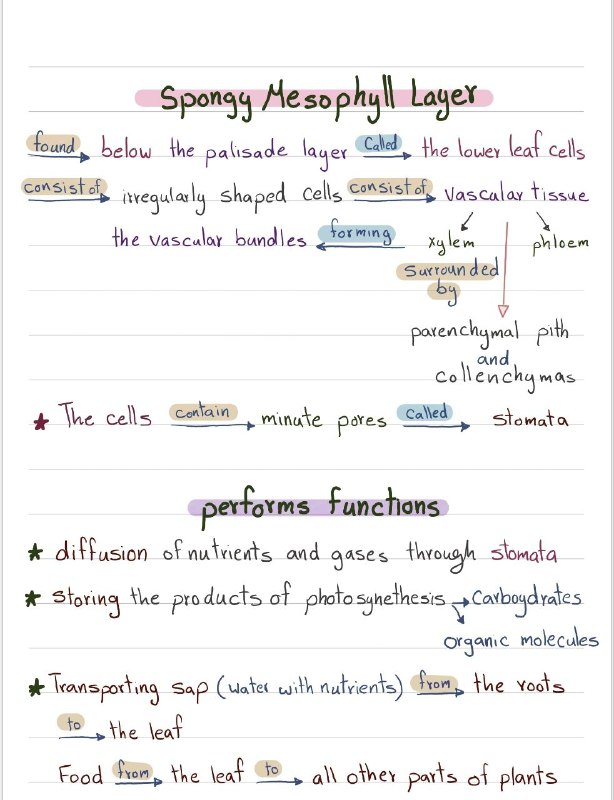 Spongy Mesophyll Layer
found below the palisade layer Called the lower leaf cells
consist of irregularly shaped cells consist of vascular tissue
the vascular bundles forming xylem phloem
surrounded
by
parenchymal pith
and
collenchymas
★ The cells contain minute pores called stomata
performs functions
★ diffusion of nutrients and gases through stomata
★ storing the products of photosynethesis → Carboydrates
organic molecules
★ Transporting sap (water with nutrients) from the roots
to the leaf
Food from the leaf to all other parts of plants